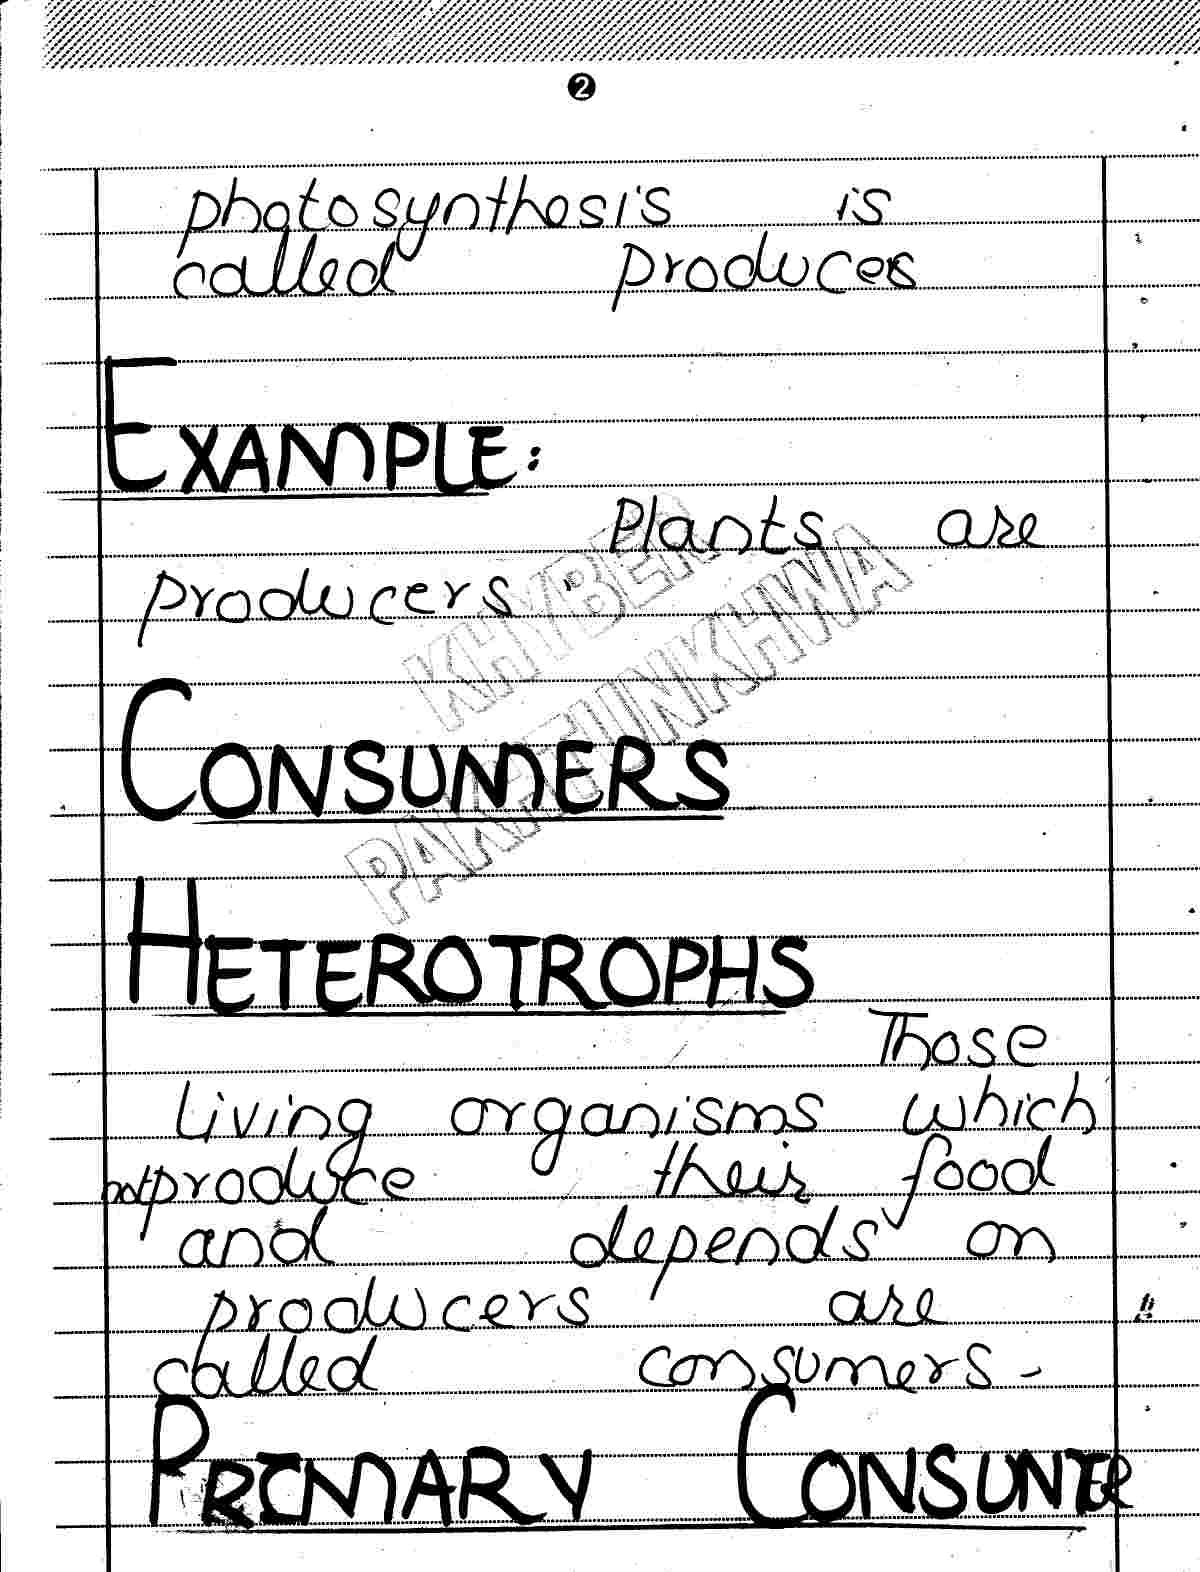 2
photosynthesis is
called producers
EXAMPLE:
Plants are
producers.
KHYBER
PAKHTUNKHWA
CONSUMERS
HETEROTROPHS
Those
living organisms which
not produce their food
and depends on
producers are
called consumers.
PRIMARY CONSUMER